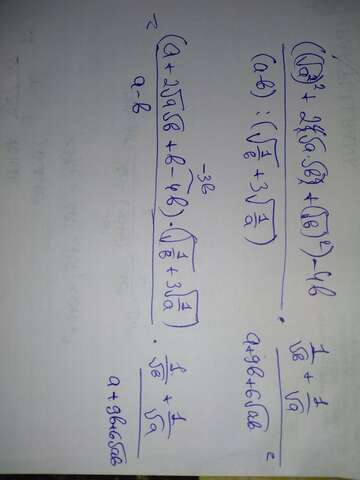 ((√a)² + 2(√a·√b) + (√b)²) - 4b / (a-b) : (√1/b + 3√1/a) · (1/√b + 1/√a) / (a+9b+6√ab) =
= (a + 2√a√b + b - 4b) · (√1/b + 3√1/a) / (a-b) · (1/√b + 1/√a) / (a+9b+6√ab)
-3b